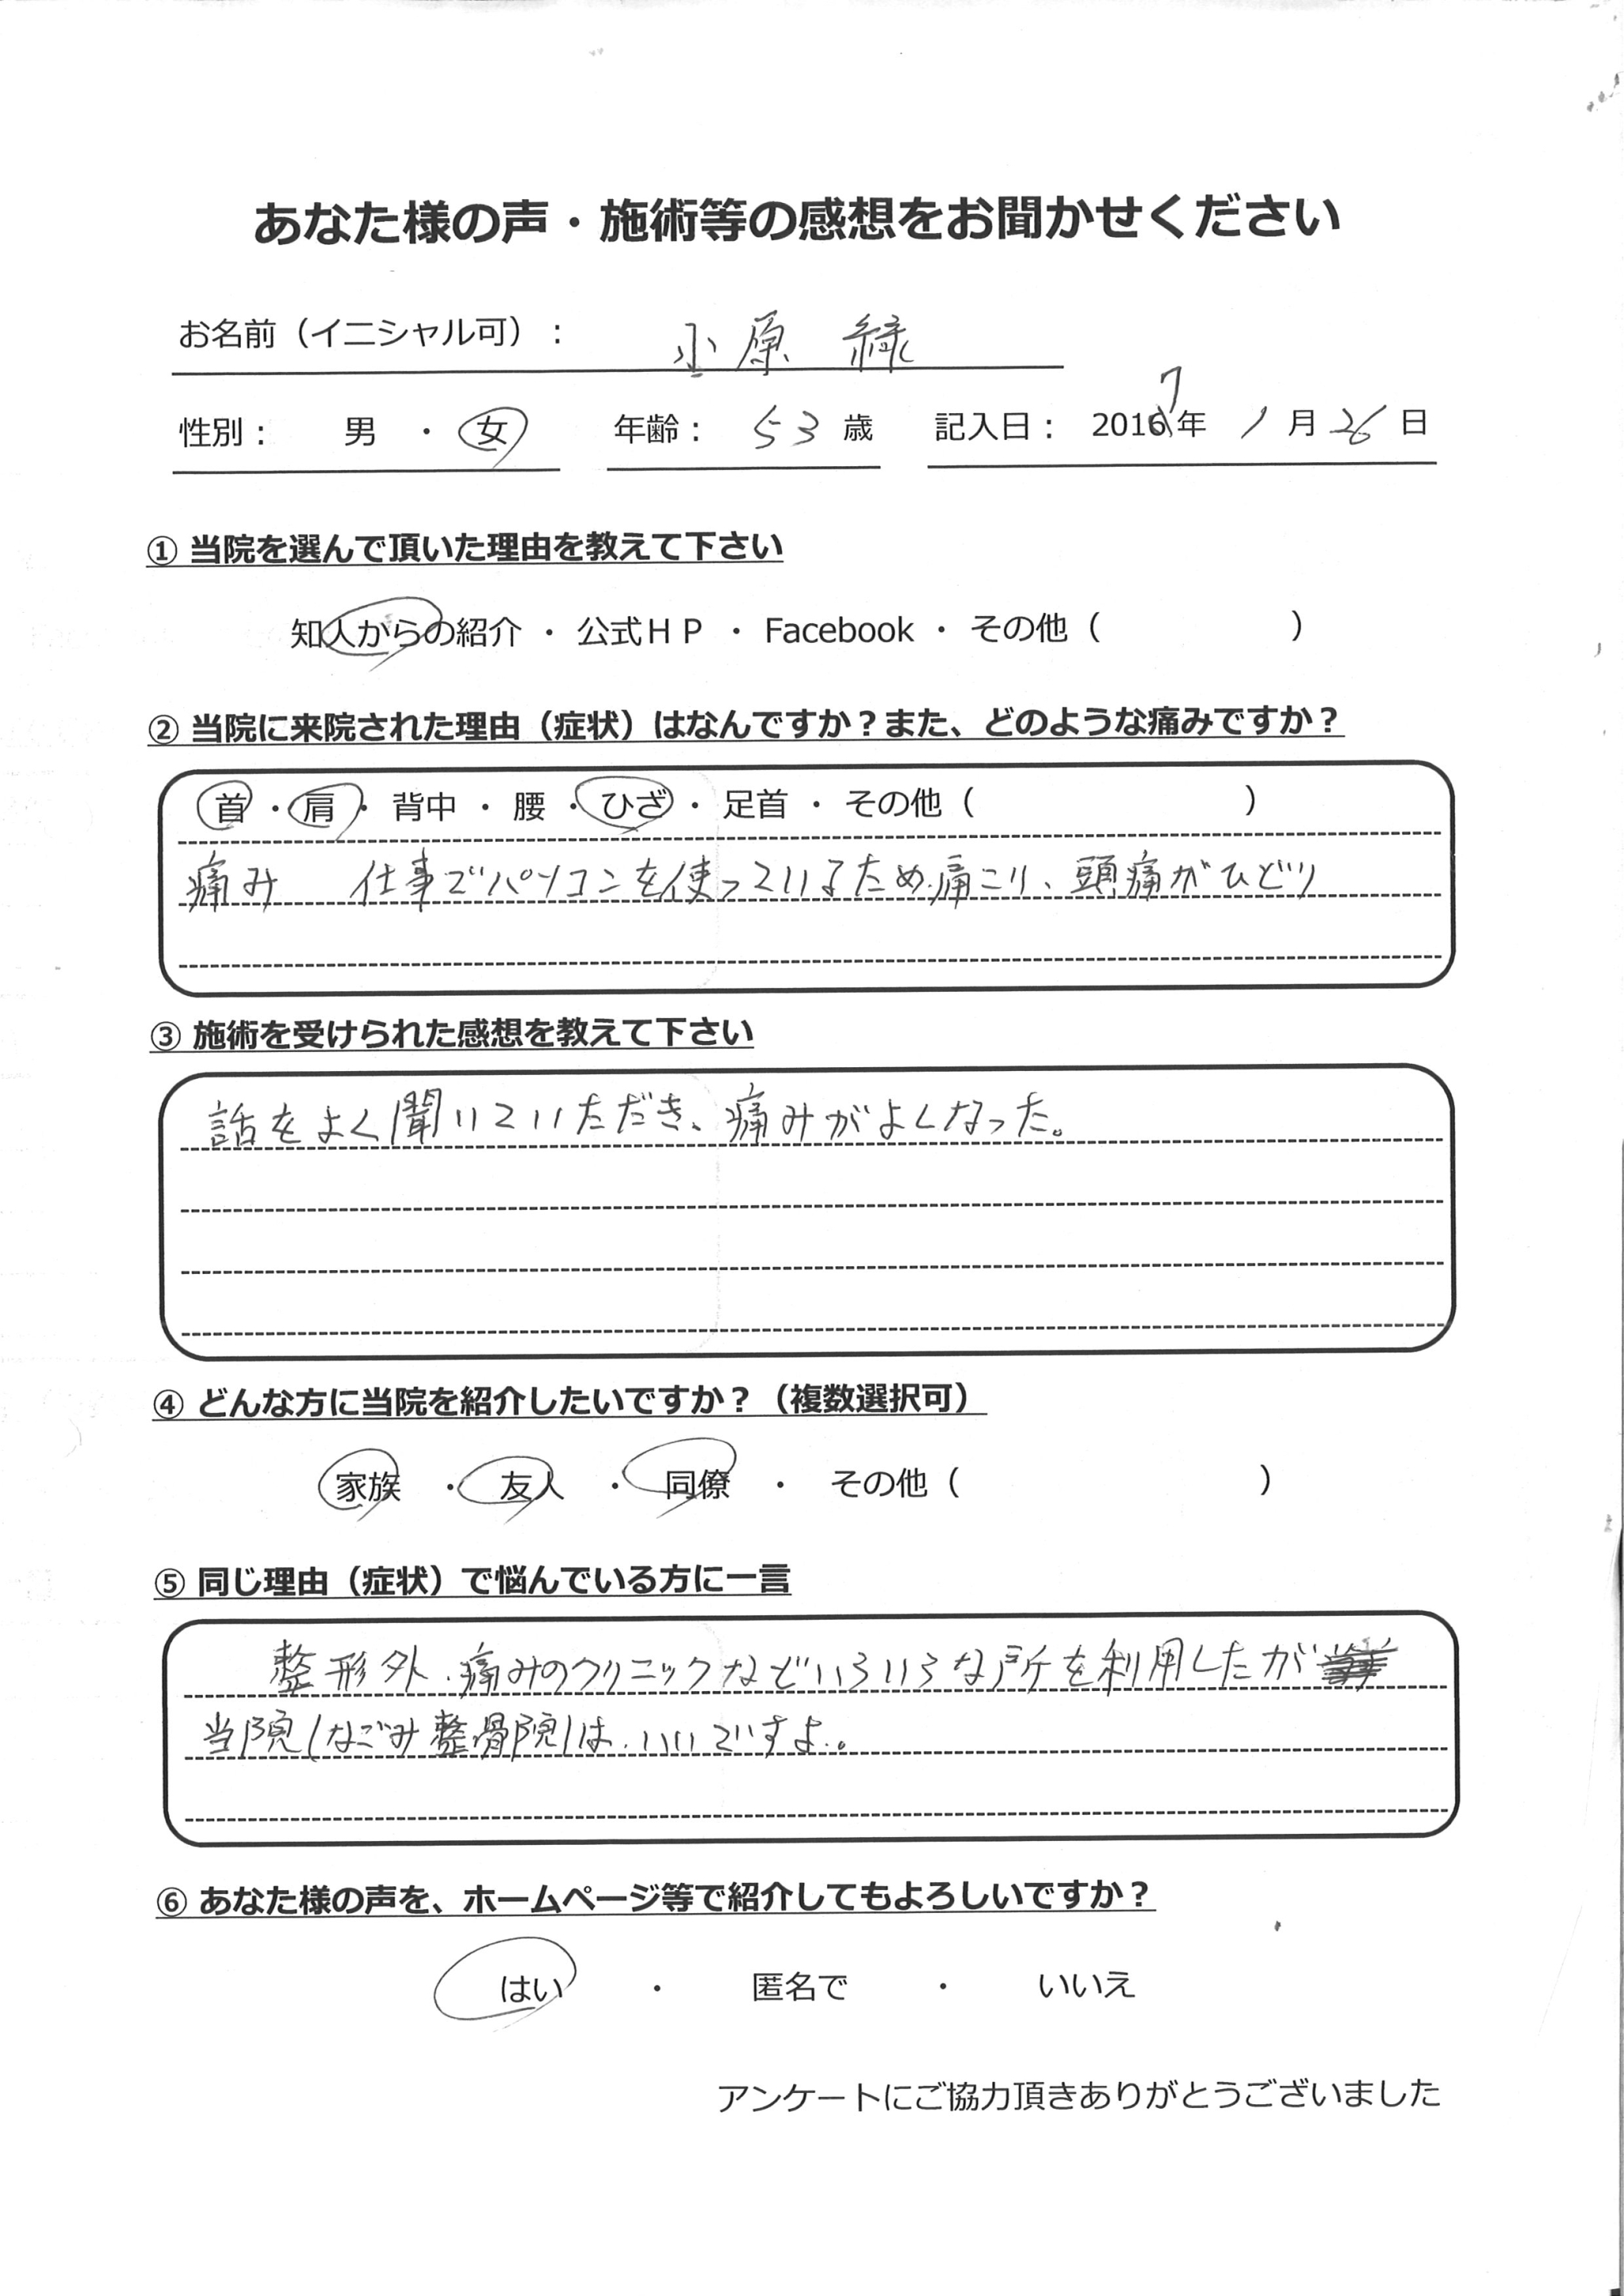 あなた様の声・施術等の感想をお聞かせください
お名前（イニシャル可）： 小原 緑
性別： 男 ・ 女 年齢： 53 歳 記入日： 2017年 1月26日
① 当院を選んで頂いた理由を教えて下さい
知人からの紹介 ・ 公式ＨＰ ・ Facebook ・ その他（ ）
② 当院に来院された理由（症状）はなんですか？また、どのような痛みですか？
首 ・ 肩 ・ 背中 ・ 腰 ・ ひざ ・ 足首 ・ その他（ ）
痛み 仕事でパソコンを使っているため.痛こり、頭痛がひどい
③ 施術を受けられた感想を教えて下さい
話をよく聞いていただき、痛みがよくなった。
④ どんな方に当院を紹介したいですか？（複数選択可）
家族 ・ 友人 ・ 同僚 ・ その他（ ）
⑤ 同じ理由（症状）で悩んでいる方に一言
整形外.痛みのクリニックなどいろいろな所を利用したが
当院(なごみ整骨院)は.いいですよ.。
⑥ あなた様の声を、ホームページ等で紹介してもよろしいですか？
はい ・ 匿名で ・ いいえ
アンケートにご協力頂きありがとうございました